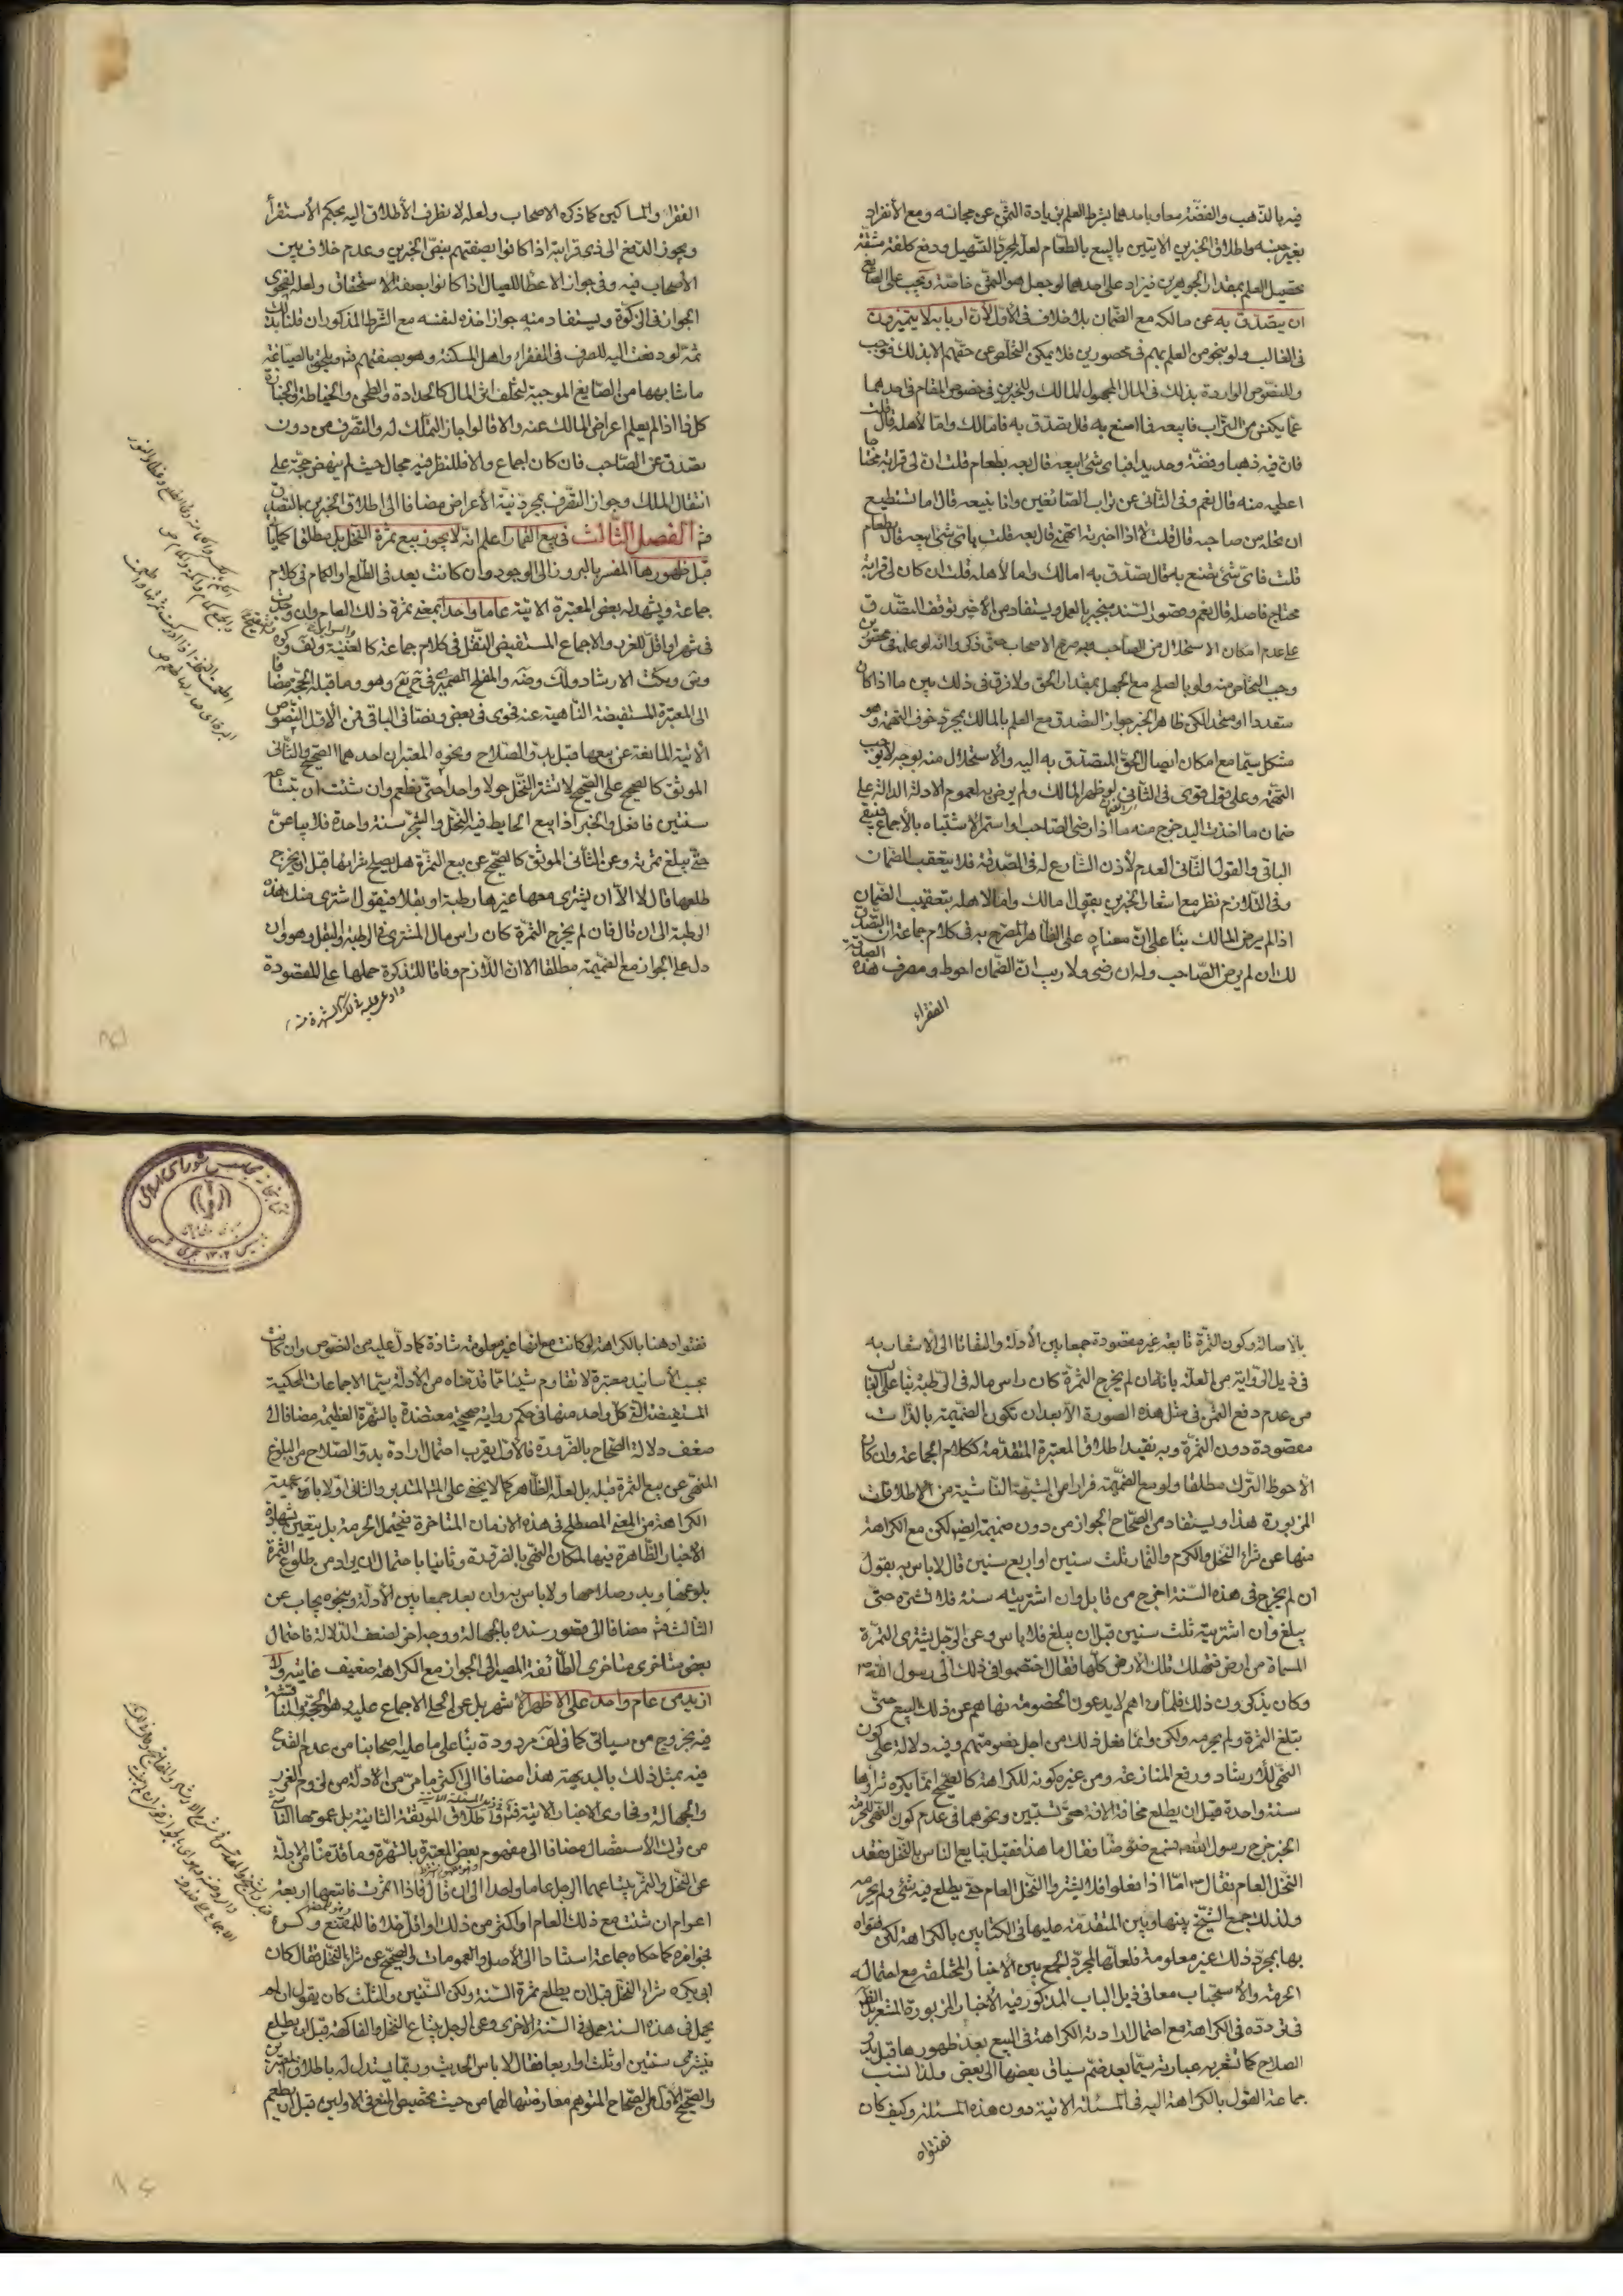 فيه بالذهب والفضة معا وباحدهما بشرط العلم بزيادة الثمن عن مجانسه ومع الأنفراد
بغير جنسه واطلاق الخبرين الاتيين بالبيع بالطعام لعله لمجرد التسهيل ودفع كلفة مشقة
تحصيل العلم بمقدار الجوهرين فيزاد على احدهما لو جعل هو الثمن خاصة ويجب على الصائغ
ان يتصدق به عن مالكه مع الضمان بلا خلاف في الأول لأن اربابه لا يتميزون
في الغالب ولو بنحو من العلم بهم في محصورين فلا يمكن التخلص عن حقهم الا بذلك فوجب
وللنصوص الواردة بذلك في المال المجهول المالك وللخبرين في خصوص المقام في احدهما
عما يكنس من التراب فابيعه فما اصنع به قال تصدق به فاما لك واما لأهله قال قلت
فان فيه ذهبا وفضة وحديدا فباى شئ ابيعه قال بعه بطعام قلت ان لى قرابة محتاجا
اعطيه منه قال نعم وفى الثانى عن تراب الصائغين وانا نبيعه قال اما تستطيع
ان تحله من صاحبه قال قلت لا اذا اخبرته اتهمنى قال بعه قلت باى شئ ابيعه قال بطعام
قلت فاى شئ نصنع به قال تصدق به اما لك واما لأهله قلت ان كان لى قرابة
محتاج فاصله قال نعم وقصور السند منجبر بالعمل ويستفاد من الأخير توقف التصدق
على عدم امكان الاستحلال من الصاحب وبه صرح الاصحاب حتى ذكروا انه لو علم في محصورين
وجب التخلص منه ولو بالصلح مع الجهل بمقدار الحق ولا فرق في ذلك بين ما اذا كان
متعددا او متحدا لكن ظاهر الخبر جواز التصدق مع العلم بالمالك بمجرد خوف التهمة وهو
مشكل سيما مع امكان ايصال الحق المتصدق به اليه والاستحلال منه بوجه لا يوجب
التهمة وعلى قول قوى في الثانى لو ظهر المالك ولم يرض به لعموم الادلة الدالة على
ضمان ما اخذت اليد خرج منه ما اذا رضى الصاحب او استمر الاشتباه بالأجماع فيبقى
الباقى والقول الثانى العدم لأذن الشارع له فى الصدقة فلا يتعقب الضمان
وفى التلازم نظر مع اشعار الخبرين بقوله اما لك واما لاهله بتعقيب الضمان
اذا لم يرض المالك بناء على ان معناه على الظاهر المصرح به فى كلام جماعة ان التصدق
لك ان لم يرض الصاحب وله ان رضى ولا ريب ان الضمان احوط ومصرف هذه الصدقة
الفقراء
الفقراء والمساكين كما ذكره الاصحاب ولعله لا نظرف الأطلاق اليه بحكم الأستقراء
ويجوز الدفع الى ذى قرابته اذا كانوا بصفتهم بنص الخبرين وعدم خلاف بين
الأصحاب فيه وفى جواز الاعطاء للعيال اذا كانوا بصفة الاستحقاق ولعله لفحوى
الجواز فى الزكوة ويستفاد منه جواز اخذه لنفسه مع الشرط المذكور ان قلنا بذلك
ثمة لو دفعت اليه للصرف فى الفقراء واهل المسكنة وهو بصفتهم ثم ويلحق بالصياغة
ما شابهها من الصنايع الموجبة لتخلف اثر المال كالحدادة والطحن والخياطة والخبازة
كل ذا اذا لم يعلم اعراض المالك عنه والا قالوا جاز التملك له والتصرف من دون
تصدق عن الصاحب فان كان اجماع والا فللنظر فيه مجال حيث لم ينهض حجة على
انتقال الملك وجواز التصرف بمجرد نية الأعراض مضافا الى اطلاق الخبرين بالتصدق
ثم الفصل الثالث فى بيع الثمار اعلم انه لا يجوز بيع ثمرة النخل بل مطلقا كما يأتى
قبل ظهورها المفسر بالبروز الى الوجود وان كانت بعد فى الطلع او الكمام فى كلام
جماعة ويشهد له بعض المعتبرة الاتية عاما واحدا بمعنى ثمرة ذلك العام وان وجدت
فى شهر او اقل للغرر والاجماع المستفيض النقل فى كلام جماعة كالغنية ولف وكره
الى المعتبرة المستفيضة الناهية عنه فحوى فى بعض ونصا فى الباقى فمن الاول النصوص
الاتية المانعة عن بيعها قبل بدو الصلاح ونحوه المعتبران احدهما الصحيح والثانى
الموثق كالصحيح على الصحيح لا تشتر النخل حولا واحدا حتى يطعم وان شئت ان تبتاعه
سنتين فافعل والخبر اذا بيع الحايط فيه النخل والشجر سنة واحدة فلا يباعن
حتى يبلغ ثمرته وعن الثانى الموثق كالصحيح عن بيع الثمرة هل يصلح شراؤها قبل ان يخرج
طلعها قال لا الا ان يشترى معها غيرها رطبة او بقلا فيقول اشترى منك هذه
الرطبة الى ان قال فان لم يخرج الثمرة كان راس مال المشترى فى الرطبة والبقل وهو وان
دل على الجواز مع الضميمة مطلقا الا ان اللازم وفاقا للتذكرة حملها على المقصودة
بالاصالة وكون الثمرة تابعة غير مقصودة جمعا بين الأدلة والتفاتا الى الأشعار به
فى ذيل الرواية من العلة بانه ان لم يخرج الثمرة كان راس ماله فى الرطبة بناء على الغالب
من عدم دفع الثمن فى مثل هذه الصورة الا بعد ان تكون الضميمة بالذات
مقصودة دون الثمرة وبه يقيد اطلاق المعتبرة المتقدمة ككلام الجماعة وان كان
الأحوط الترك مطلقا ولو مع الضميمة فرارا من الشبهة الناشية من الأطلاقات
المزبورة هذا ويستفاد من الصحاح الجواز من دون ضميمة ايضا لكن مع الكراهة
منها عن شراء النخل والكرم والثمار ثلث سنين او اربع سنين قال لا باس به يقول
ان لم يخرج فى هذه السنة اخرج من قابل وان اشتريته سنة فلا تشتره حتى
يبلغ وان اشتريته ثلث سنين قبل ان يبلغ فلا باس وعن الرجل يشترى الثمرة
المسماة من ارض فتهلك تلك الأرض كلها فقال اختصموا فى ذلك الى رسول الله ص
وكان يذكرون ذلك فلما راهم لا يدعون الخصومة نهاهم عن ذلك البيع حتى
يبلغ الثمرة ولم يحرمه ولكن وانما فعل ذلك من اجل خصومتهم وفيه دلالة على كون
النهى للأرشاد ورفع المنازعة ومن غيره كونه للكراهة كالصحيح انما يكره شراؤها
سنة واحدة قبل ان يطلع مخافة الافة حتى تستبين ونحوهما فى عدم كون النهى للحرمة
الخبر خرج رسول الله فسمع ضوضا فقال ما هذا فقيل تبايع الناس بالنخل فقعد
النخل العام فقال ص اما اذا فعلوا فلا يشتروا النخل العام حتى يطلع فيه شئ ولم يحرمه
ولذلك جمع الشيخ بينها وبين المتقدمة عليها فى الكتابين بالكراهة لكن فتواه
بها بمجرد ذلك غير معلومة فلعلها لمجرد الجمع بين الأخبار المختلفة مع احتماله
الحرمة والاستحباب معا فى ذيل الباب المذكور فيه الأخبار المزبورة المشعر بالظ
فى تردده فى الكراهة مع احتمال ارادته الكراهة فى البيع بعد ظهورها قبل بدو
الصلاح كما تشعر به عبارته سيما بعد ضم سياق بعضها الى بعض ولذا نسب
جماعة القول بالكراهة اليه فى المسئلة الاتية دون هذه المسئلة وكيف كان
ففتواه
ففتواه هنا بالكراهة لو كانت مع انها غير معلومة شاذة كما دل عليه من النصوص وان كانت
بحسب الأسانيد معتبرة لا تقاوم شيئا مما قدمناه من الأدلة سيما الاجماعات المحكية
المستفيضة التى كل واحد منها فى حكم رواية صحيحة معتضدة بالشهرة العظيمة مضافا الى
ضعف دلالة الصحاح بالضرورة فالأول يقرب احتمال ارادة بدو الصلاح من البلوغ
المنهى عن بيع الثمرة قبله بل لعله الظاهر كما لا يخفى على المتدبر والثانى اولا باعمية
الكراهة من المعنى المصطلح فى هذه الازمان المتاخرة فيحتمل الحرمة بل يتعين بشهادة
الأخبار الظاهرة فيها لمكان النهى بالضرورة وثانيا باحتمال ان يراد من طلوع الثمرة
بلوغها وبدو صلاحها ولا باس به وان بعد جمعا بين الأدلة وبنحوه يجاب عن
الثالث ثم مضافا الى قصور سنده بالجهالة ووجه اخر لضعف الدلالة فاحتمال
بعض متاخرى متاخرى الطائفة المصير الى الجواز مع الكراهة ضعيف غايته ولا
ازيد من عام واحد على الاظهر الأشهر بل عن الحلى الاجماع عليه وهو الحجة
فيه بخروج من سياتى كما فى لف مردودة بناء على ما عليه اصحابنا من عدم القدح
فيه بمثل ذلك بالبديهة هذا مضافا الى اكثر ما مر من الادلة من لزوم الغرر
والجهالة وفحاوى الاخبار الاتية ثم واطلاق الموثقة الثانية بل عمومها الناشى
من ترك الأستفصال مضافا الى مفهوم بعض المعتبرة بالشهرة وما قدمناه من الأدلة
عن النخل والثمر يبتاعهما الرجل عاما واحدا الى ان قال فاذا اثمرت فابتعها اربعة
اعوام ان شئت مع ذلك العام او اكثر من ذلك او اقل خلافا للمقنع وكره
بجوازه كما حكاه جماعة استنادا الى الأصل والعمومات والصحيح عن شراء النخل فقال كان
ابى يكره شراء النخل قبل ان يطلع ثمرة السنة ولكن السنتين والثلث كان يقول ان لم
يحمل فى هذه السنة حمل فى السنة الاخرى وعن الرجل يبتاع النخل والفاكهة قبل ان يطلع
فيشترى سنتين او ثلث او اربعا فقال لا باس الحديث وربما يستدل له باطلاق المعتبرين
والصحيح الأول من الصحاح المتوهم معارضتها لهما من حيث تخصيص المنع فى الاولين قبل ان يطعم